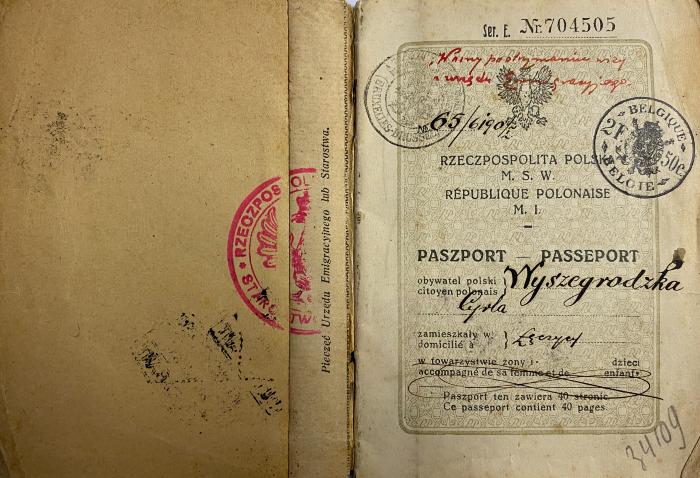 Pieczęć Urzędu Emigracyjnego lub Starostwa.
RZECZPOS OL
STARO TW
Ser. E. Nr. 704505
Ważny po otrzymaniu wizy
Emigracyjnego.
BRUXELLES-BRUSSEL
No 65/
BELGIQUE
2F 50C.
BELGIE
RZECZPOSPOLITA POLSK
M. S. W.
RÉPUBLIQUE POLONAISE
M. I.
PASZPORT — PASSEPORT
obywatel polski
citoyen polonais } Wyszegrodzka
Cyrla
zamieszkały w
domicilié à } Łęczyca
w towarzystwie żony i dzieci
accompagné de sa femme et de enfants
Paszport ten zawiera 40 stronic.
Ce passeport contient 40 pages.
34109